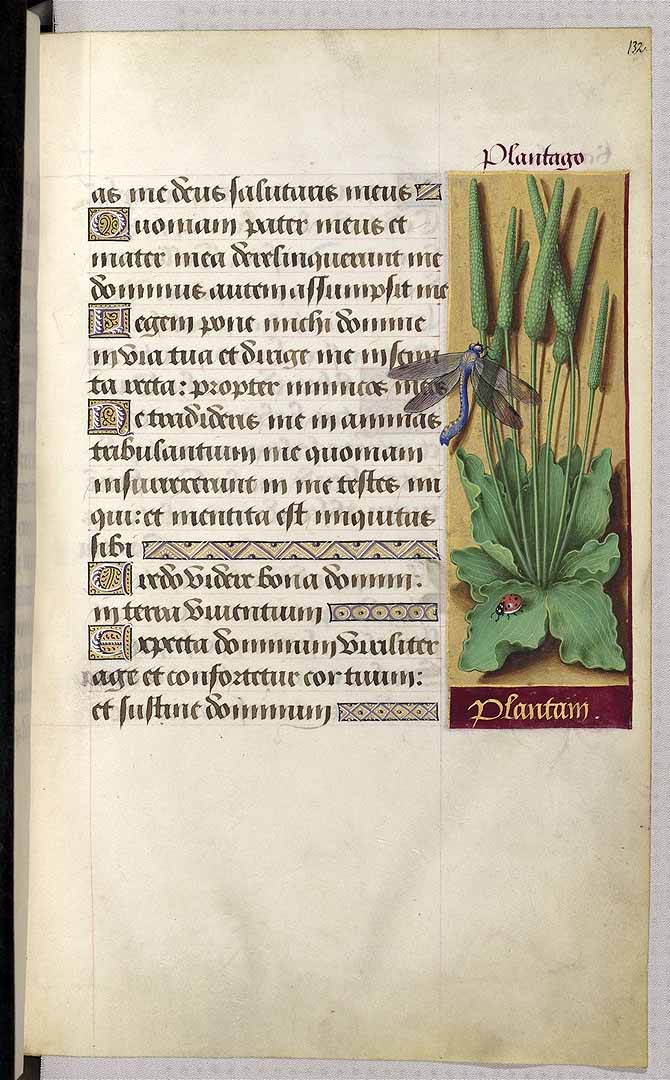 132
Plantago
as me deus salutaris meus
Quoniam pater meus et
mater mea dereliquerunt me
dominus autem assumpsit me
Legem pone michi domine
in via tua et dirige me in semi
ta recta: propter inimicos meos
Ne tradideris me in animas
tribulantium me quoniam
insurrexerunt in me testes ini
qui: et mentita est iniquitas
sibi
Credo videre bona domini:
in terra viventium
Expecta dominum viriliter
age et confortetur cor tuum:
et sustine dominum
Plantain.